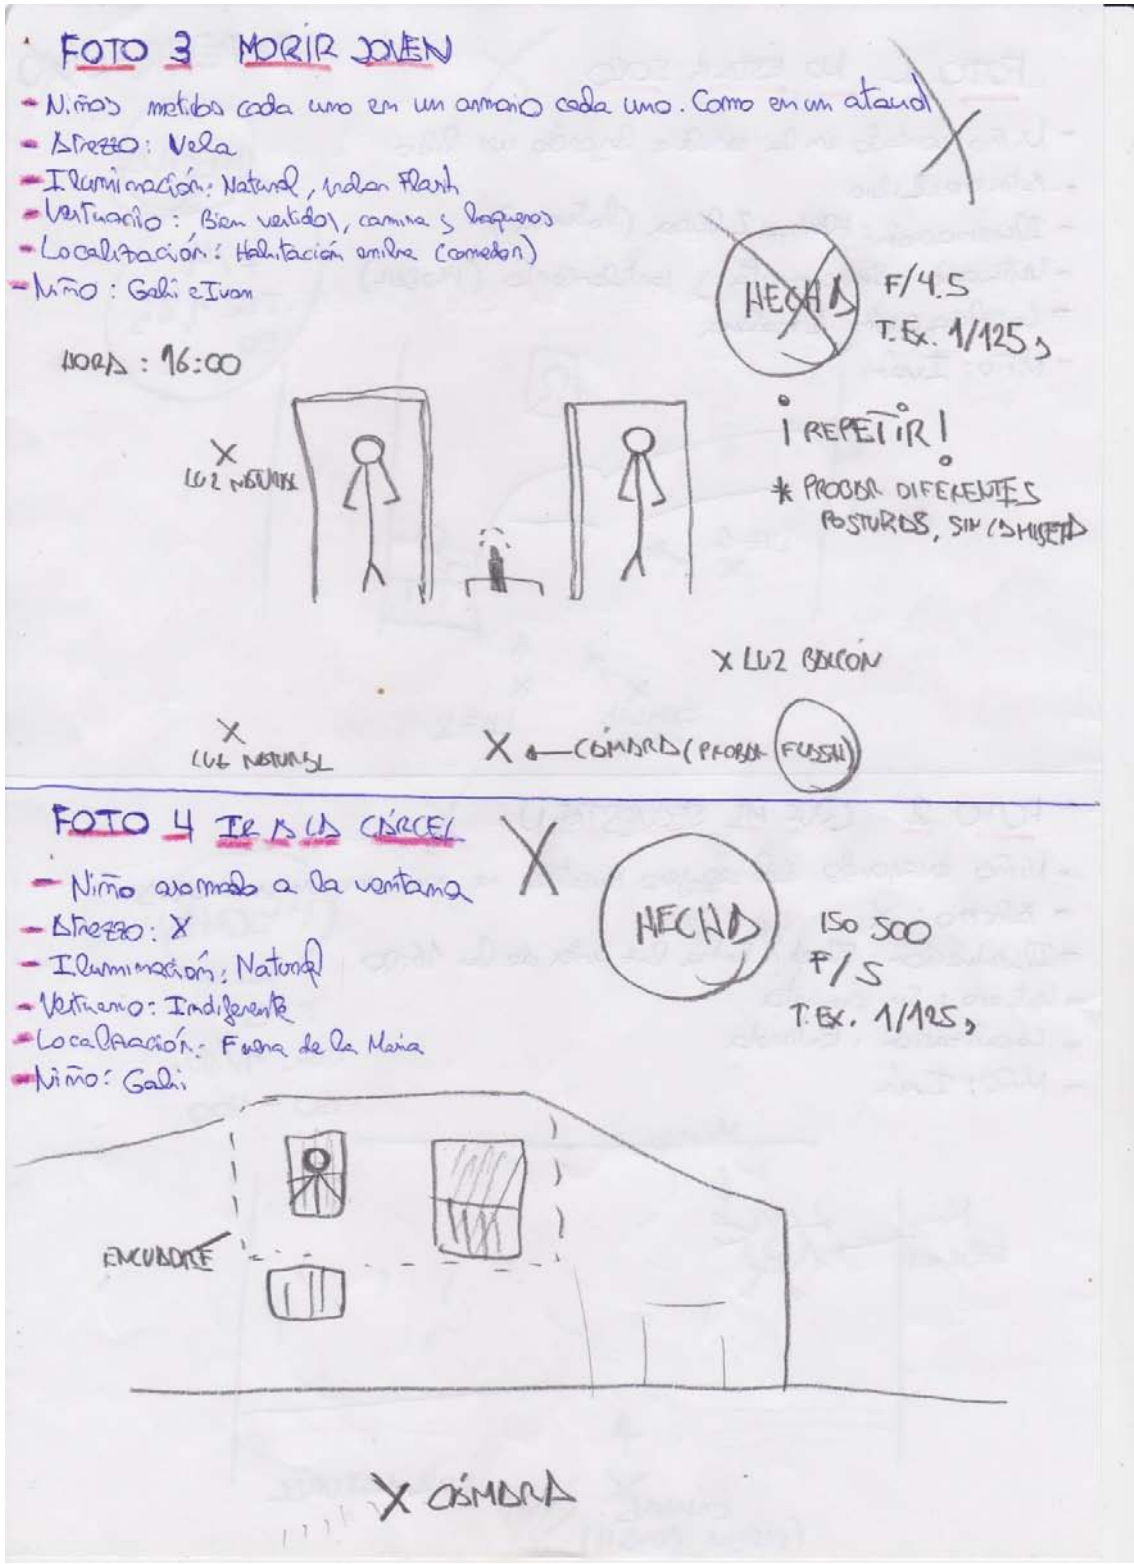 FOTO 3 MORIR JOVEN
- Niños metidos cada uno en un armario cada uno. Como en un ataud
- Atrezzo: Vela
- Iluminación: Natural, Flash
- Vestuario: Bien vestidos, camisa y vaqueros
- Localización: Habitación (comedor)
- Niño: Gabi e Ivan
HECHA
F/4.5
T. Ex. 1/125s
HORA: 16:00
¡REPETIR!
* PROBAR DIFERENTES
POSTURAS, SIN CAMISETA
X
LUZ NATURAL
X LUZ BALCÓN
X
LUZ NATURAL
X ← CÁMARA (PROBAR FLASH)
FOTO 4 IR A LA CÁRCEL
- Niño asomado a la ventana
- Atrezzo: X
- Iluminación: Natural
- Vestuario: Indiferente
- Localización: Fuera de la
- Niño: Gabi
HECHA
ISO 500
F/5
T. EX. 1/125s
ENCUADRE
X CÁMARA